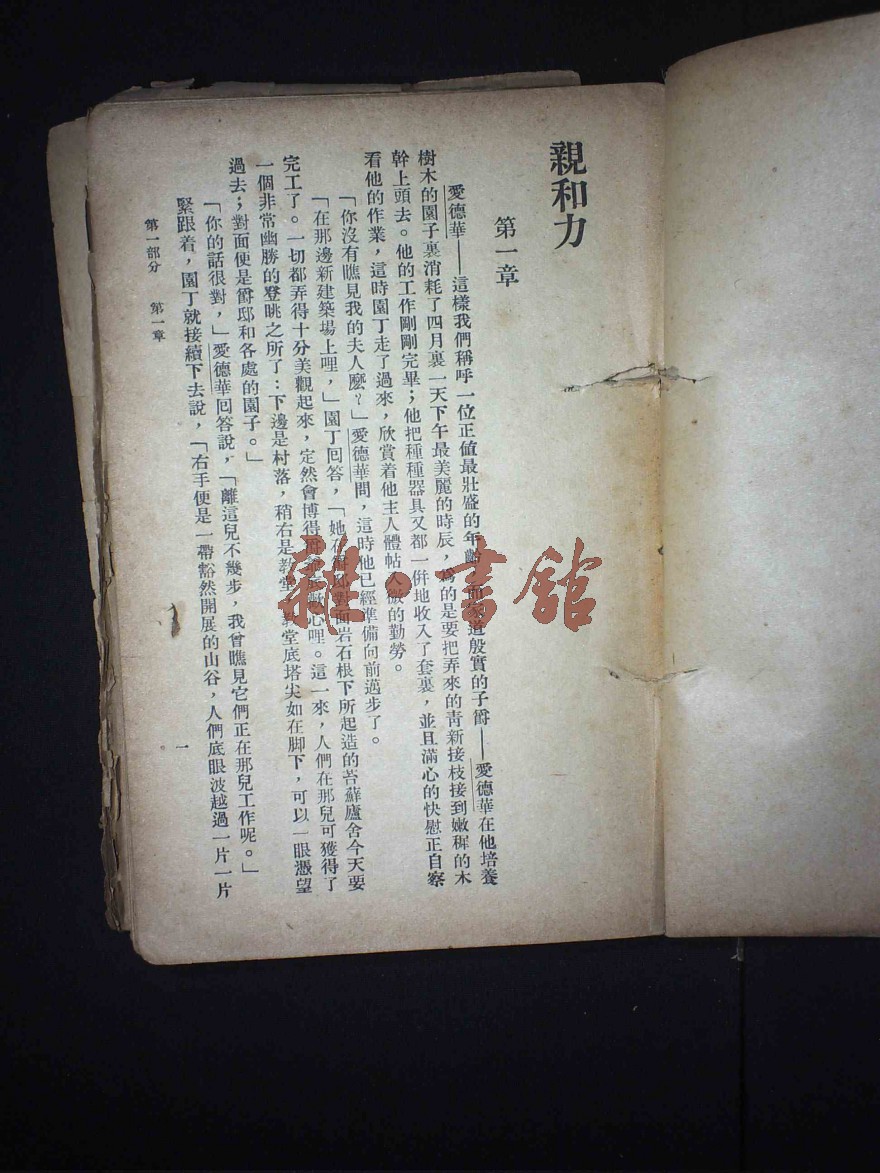 親和力
第一章
愛德華——這樣我們稱呼一位正值最壯盛的年齡，而家道殷實的子爵——愛德華在他培養
樹木的園子裏消耗了四月裏一天下午最美麗的時辰，為的是要把弄來的青新接枝接到嫩穉的木
幹上頭去。他的工作剛剛完畢；他把種種器具又都一併地收入了套裏，並且滿心的快慰正自察
看他的作業，這時園丁走了過來，欣賞着他主人體帖入微的勤勞。
「你沒有瞧見我的夫人麼？」愛德華問，這時他已經準備向前邁步了。
「在那邊新建築場上哩，」園丁回答，「她在爵邸對面岩石根下所起造的苔蘇廬舍今天要
完工了。一切都弄得十分美觀起來，定然會博得底歡心哩。這一來，人們在那兒可獲得了
一個非常幽勝的登眺之所了：下邊是村落，稍右是教堂，教堂底塔尖如在脚下，可以一眼憑望
過去；對面便是爵邸和各處的園子。」
「你的話很對，」愛德華回答說，「離這兒不幾步，我曾瞧見它們正在那兒工作呢。」
緊跟着，園丁就接續下去說，「右手便是一帶豁然開展的山谷，人們底眼波越過一片一片
第一部分 第一章
一
雜·書館